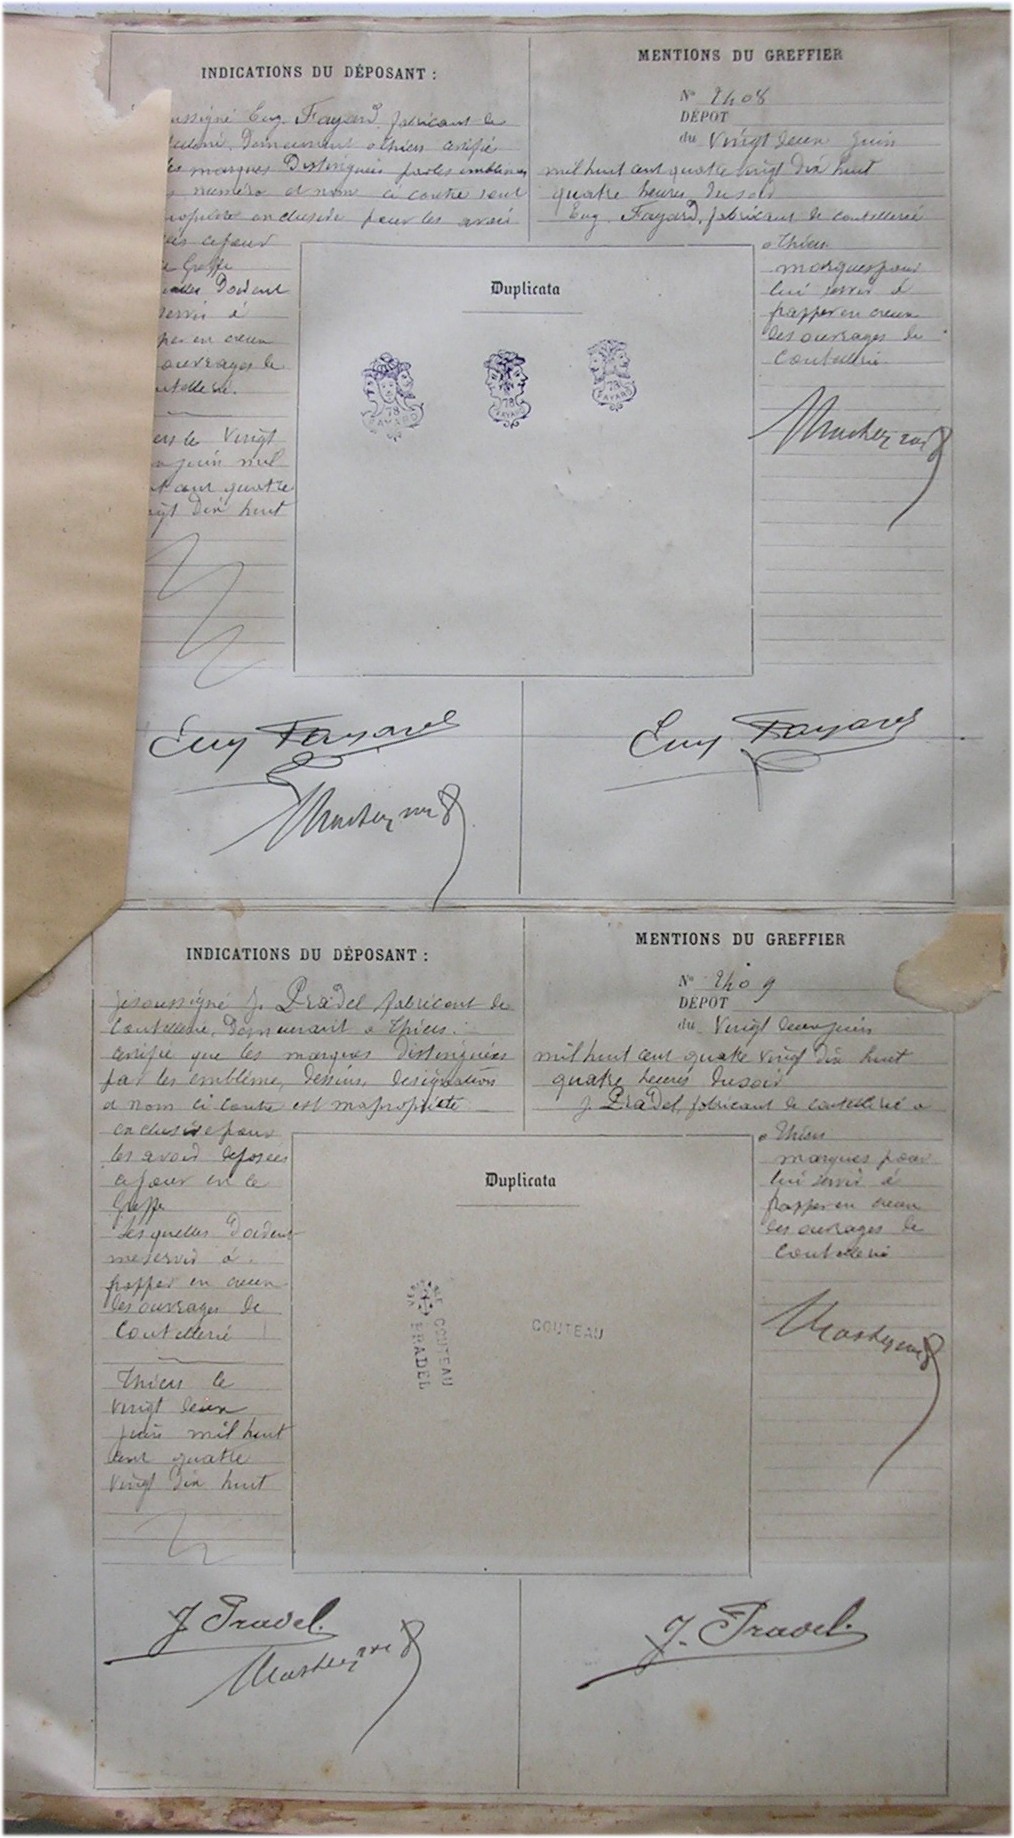 INDICATIONS DU DÉPOSANT :
ussigné Eug. Fayard, fabricant de
Demeurant à Thiers certifie
les marques Distinguées par les emblèmes
numéro et nom ci contre sont
propriété exclusive pour les avoir
ce jour
Greffe
Doivent
servir à
per en creux
ouvrages de
utellerie.
ers le Vingt
juin mil
t cent quatre
ngt Dix huit
MENTIONS DU GREFFIER
N° 2408
DÉPÔT
du Vingt deux Juin
mil huit cent quatre vingt Dix huit
quatre heures du soir
Eug. Fayard, fabricant de coutellerie
à Thiers
marques pour
lui servir à
frapper en creux
les ouvrages de
Coutellerie
Duplicata
78
FAYARD
78
FAYARD
78
FAYARD
Eug Fayard
Eug Fayard
INDICATIONS DU DÉPOSANT :
Je soussigné J. Pradel fabricant de
Coutellerie, Demeurant à Thiers.
certifie que les marques distinguées
par les emblème, dessins, désignations
et nom ci contre est ma propriété
exclusive pour
les avoir déposées
ce jour en ce
Greffe
Lesquelles Doivent
me servir à
frapper en creux
les ouvrages de
Coutellerie
Thiers le
vingt deux
juin mil huit
cent quatre
vingt Dix huit
MENTIONS DU GREFFIER
N° 2409
DÉPÔT
du Vingt deux juin
mil huit cent quatre vingt Dix huit
quatre heures du soir
J. Pradel, fabricant de coutellerie à
à Thiers
marques pour
lui servir à
frapper en creux
les ouvrages de
Coutellerie
Duplicata
COUTEAU
PRADEL
COUTEAU
J. Pradel.
J. Pradel.